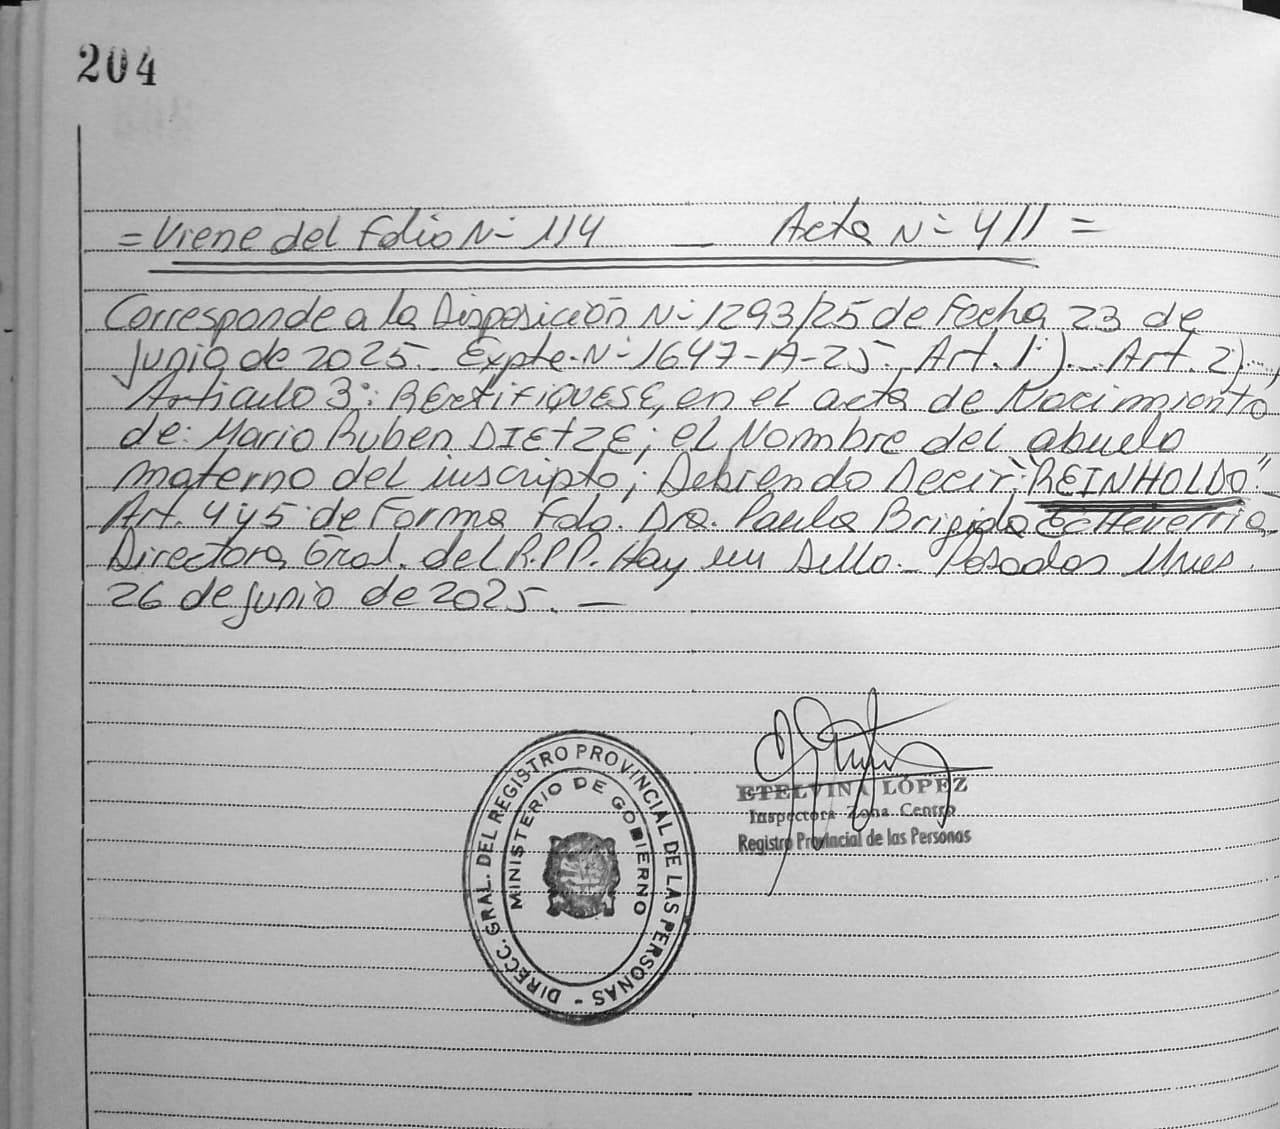 204
= Viene del Folio Nº 114 _ Acta Nº 411 =
Corresponde a la Disposición Nº 1293/25 de Fecha 23 de
junio de 2025. Expte. Nº 1647-A-25. Art. 1º)... Art. 2)...,
Articulo 3º: RECTIFIQUESE, en el acta de Nacimiento
de: Mario Ruben DIETZE; el Nombre del abuelo
materno del inscripto; Debiendo Decir; "REINHOLDO".
Art. 4 y 5 de Forma Fdo. Dra. Paula Brigida Echeverria
Directora Gral. del R.P.P. Hay un Sello. _ Posadas Mnes.
26 de junio de 2025. —
DIRECC. GRAL. DEL REGISTRO PROVINCIAL DE LAS PERSONAS -
MINISTERIO DE GOBIERNO
ETELVINA LÓPEZ
Inspectora Zona Centro
Registro Provincial de las Personas